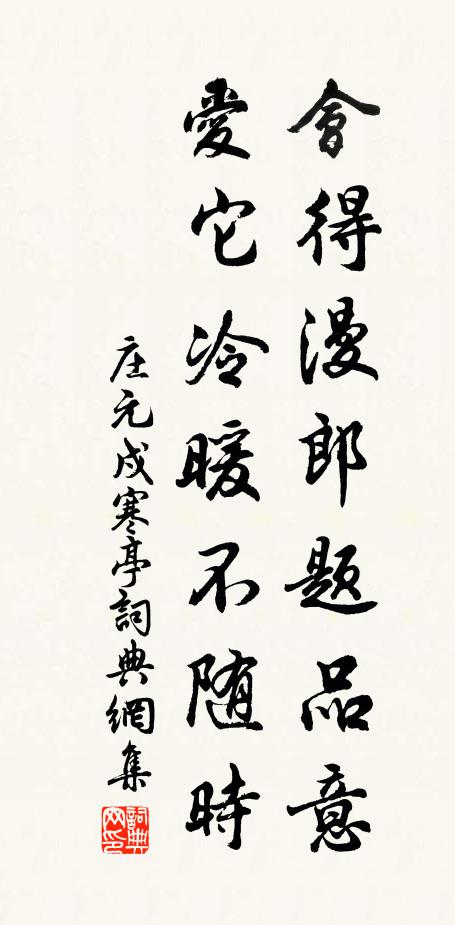 會得漫郎題品意
愛它冷暖不随時
庄元戍寒亭詞典網集
詞典网印